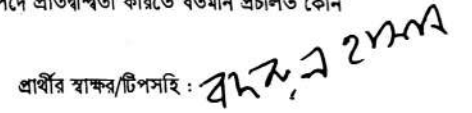 পদে প্রতিদ্বন্দ্বিতা করিতে বর্তমান প্রচলিত কোন
প্রার্থীর স্বাক্ষর/টিপসহি : বদরুল হাসান